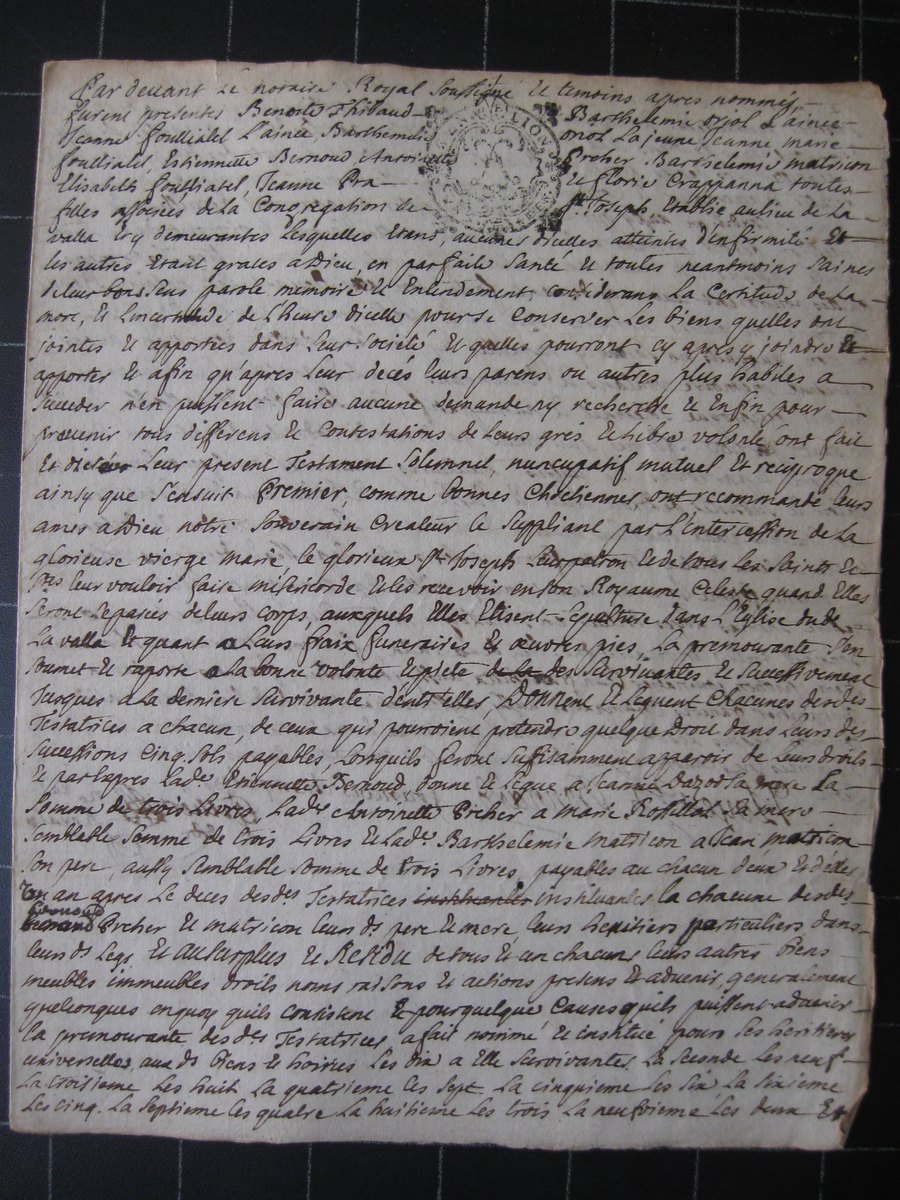 Par devant Le notaire Royal Soussigné et temoins apres nommés
furent presentes Benoite Thibaud Barthelemie oriol L'ainee
Jeanne fouilliatel L'ainée, Barthemie oriol La jeune Jeanne marie
fouilliatel, Estiennette Bernoud Antoinette Precher Barthelemie matricon
Elisabeth fouilliatel, Jeanne Pra et florie Crappanna toutes
filles associees de la Congregation de St Joseph Etablie au lieu de La
valla Et y demeurantes Lesquelles Etans, aucunes d'icelles atteintes d'infirmité Et
les autres Etant graces a Dieu, en parfaite Santé Et toutes neantmoins Saines
de leur bons Sens parole, memoire Et Entendement, considerans La Certitude de La
mort, Et L'incertitude de L'heure d'icelle pour se Conserver Les biens quelles ont
jointes Et apportées dans Leur Societé Et quelles pourront cy apres y joindre Et
apporter Et afin qu'apres Leur décés leurs parens ou autres plus habiles a
Succeder n'en puissent faire aucune demande ny recherche Et Enfin pour
prevenir tous differens Et Contestations de Leurs grés Et Libre volonté, ont fait
Et dicté Leur present Testament Solemnel, nuncupatif mutuel Et reciproque
ainsy que S'ensuit Premier, comme bonnes Chrétiennes, ont recommandé Leurs
ames a Dieu notre Souverain Createur le Suppliant par L'intercession de La
glorieuse vierge marie, le glorieux St Joseph Leur patron Et de tous Les Saints Et
Stes leur vouloir faire misericorde Et les recevoir en son Royaume Celeste quand Elles
Seront Separées de leurs Corps, auxquels Elles Elisent Sepulture dans L'Eglise du de
La valla Et quant a Leurs fraix funeraires Et œuvres pies, La premourante S'en
Soumet Et raporte a La bonne volonté Et pieté de la des Survivantes Et Successivement
Jusques a La derniere Survivante d'entr'elles, Donnent Et Leguent Chacunes desdes
Testatrices a chacun, de ceux qui pourroient pretendre quelque Droit dans Leurs des
Successions Cinq Sols, payables, Lorsquils feront Suffisamment apparoir de Leurs droits
Et par apres Lade Etiennette Bernoud, donne Et Legue a Jeanne Sa mere La
Somme de trois Livres, Lade Antoinette Precher a marie Sa mere
Semblable Somme de trois Livres Et Lade Barthelemie matricon a Jean matricon
Son pere, aussy Semblable Somme de trois Livres, payables au chacun d'eux
un an apres Le deces desdes Testatrices instituantes instituantes La chacune desdes
Bernoud Precher Et matricon Leurs ds pere Et mere Leurs heritiers particuliers dans
Leurs ds Legs Et au Surplus Et Residu de tous Et un chacuns Leurs autres Biens
meubles immeubles droits noms raisons Et actions presens Et advenir, generalement
quelconques en quoy quils consistent Et pour quelque Causes quils puissent advenir
La premourante desdes Testatrices, a fait nommé Et institué pour Ses heritieres
universelles, aux ds Biens Et hoiries Les dix a Elle Survivantes, La Seconde Les neuf
La troisieme Les huit La quatrieme Les Sept La cinquieme Les Six La Sixieme
Les Cinq, La Septieme Les quatre La huitieme Les trois La neufvieme Les deux Et